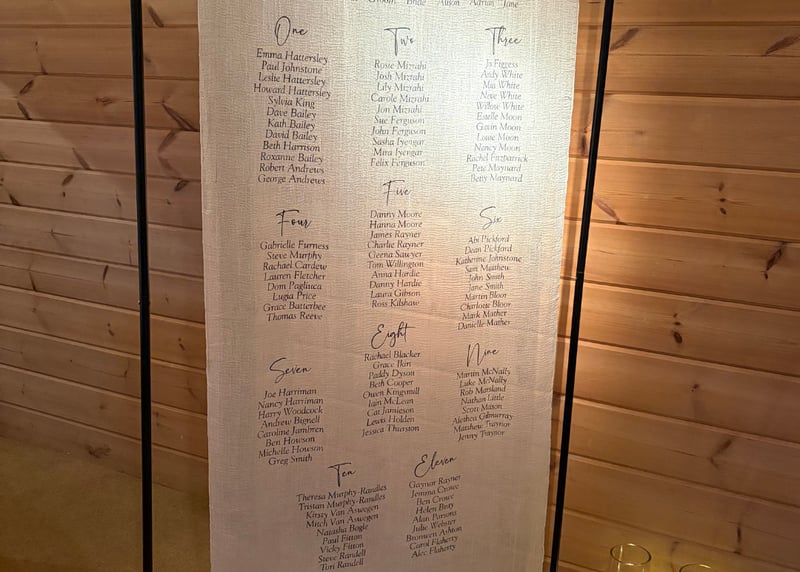 Groom Bride Alison Adrian Jane
One
Emma Hattersley
Paul Johnstone
Leslie Hattersley
Howard Hattersley
Sylvia King
Dave Bailey
Kath Bailey
David Bailey
Beth Harrison
Roxanne Bailey
Robert Andrews
George Andrews
Two
Rosie Mizrahi
Josh Mizrahi
Lily Mizrahi
Carole Mizrahi
Jon Mizrahi
Sue Ferguson
John Ferguson
Sasha Iyengar
Mira Iyengar
Felix Ferguson
Three
Jo Firgess
Andy White
Mia White
Neve White
Willow White
Estelle Moon
Gavin Moon
Louie Moon
Nancy Moon
Rachel Fitzpatrick
Pete Maynard
Betty Maynard
Four
Gabrielle Furness
Steve Murphy
Rachael Cardew
Lauren Fletcher
Dom Pagliuca
Lugia Price
Grace Batterbee
Thomas Reeve
Five
Danny Moore
Hanna Moore
James Rayner
Charlie Rayner
Geena Sawyer
Tom Willington
Anna Hardie
Danny Hardie
Laura Gibson
Ross Kilshaw
Six
Abi Pickford
Dean Pickford
Katherine Johnstone
Sam Matthew
John Smith
Jane Smith
Martin Bloor
Charlotte Bloor
Mark Mather
Danielle Mather
Seven
Joe Harriman
Nancy Harriman
Harry Woodcock
Andrew Bignell
Caroline Jambren
Ben Howson
Michelle Howson
Greg Smith
Eight
Rachael Blacker
Grace Ikin
Paddy Dyson
Beth Cooper
Owen Kingsmill
Iain McLean
Cat Jamieson
Lewis Holden
Jessica Thurston
Nine
Martin McNally
Luke McNally
Rob Marsland
Nathan Little
Scott Mason
Alethea Gilmurray
Matthew Traynor
Jenny Traynor
Ten
Theresa Murphy-Randles
Tristan Murphy-Randles
Kirsty Van Aswegen
Mitch Van Aswegen
Natasha Bogie
Paul Fitton
Vicky Fitton
Steve Randell
Tori Randell
Eleven
Gaynor Rayner
Jemma Crowe
Ben Crowe
Helen Bray
Alan Parsons
Julie Webster
Bronwen Ashton
Carol Flaherty
Alec Flaherty